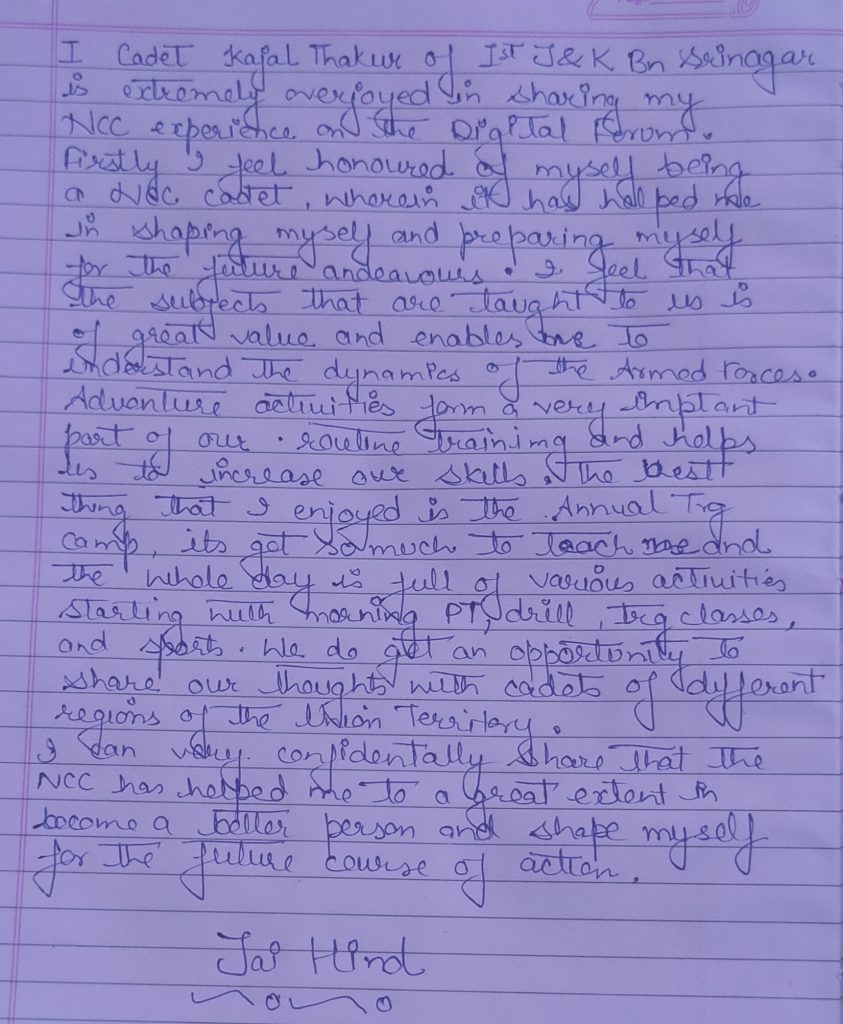 I Cadet Kajal Thakur of Ist J&K Bn Srinagar
is extremely overjoyed in sharing my
NCC experience on the Digital Forom.
Firstly I feel honoured of myself being
a Ncc cadet, wherein it has helped me
in shaping myself and preparing myself
for the future andeavours. I feel that
the subjects that are taught to us is
of great value and enables me to
understand the dynamics of the Armed Forces.
Adventure activities form a very imptant
part of our. routine training and helps
us to increase our skills. The best
thing that I enjoyed is the Annual Trg
camp, its got so much to teach me and
the whole day is full of various activities
starting with morning PT, drill, trg classes,
and sports. We do get an opportunity to
share our thoughts with cadets of different
regions of the Union Territory.
I can very confidentally share that the
NCC has helped me to a great extent in
become a better person and shape myself
for the future course of action.
Jai Hind